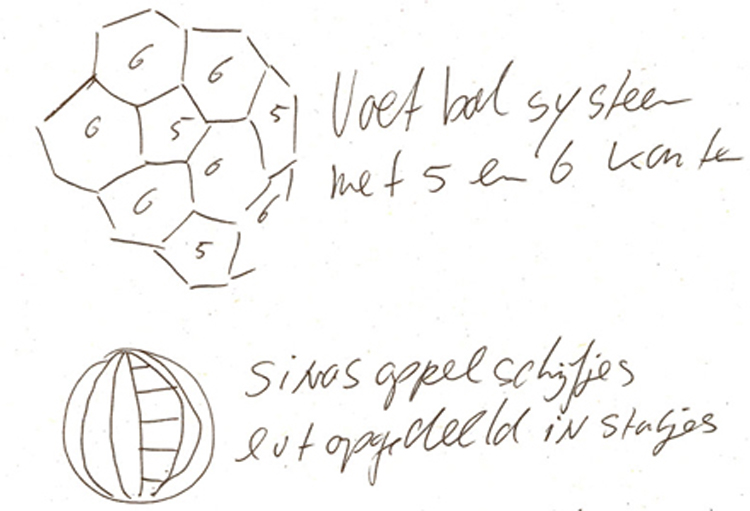 6
6
5
6
5
6
6
6
5
Voetbal systeem
met 5 en 6 kanten
sinasappel schijfjes
evt opgedeeld in stukjes